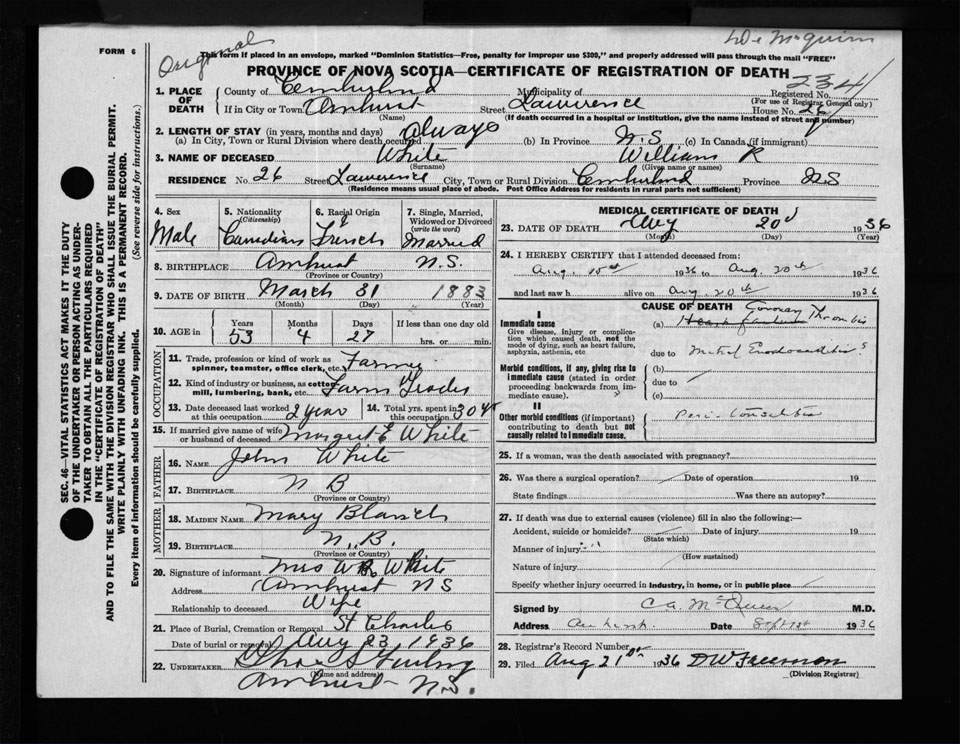 FORM 6
Original
This form if placed in an envelope, marked "Dominion Statistics—Free, penalty for improper use $300," and properly addressed will pass through the mail "FREE"
PROVINCE OF NOVA SCOTIA—CERTIFICATE OF REGISTRATION OF DEATH
234
1. PLACE OF DEATH County of Cumberland Municipality of Registered No.
(For use of Registrar General only)
If in City or Town Amherst Street Lawrence House No. 26
(Name) (If death occurred in a hospital or institution, give the name instead of street and number)
2. LENGTH OF STAY (in years, months and days)
(a) In City, Town or Rural Division where death occurred always (b) In Province N.S (c) In Canada (if immigrant)
3. NAME OF DECEASED White William R
(Surname) (Given name or names)
RESIDENCE No. 26 Street Lawrence City, Town or Rural Division Cumberland Province N.S
(Residence means usual place of abode. Post Office Address for residents in rural parts not sufficient)
4. Sex Male
5. Nationality (Citizenship) Canadian
6. Racial Origin French
7. Single, Married, Widowed or Divorced (write the word) Married
8. BIRTHPLACE Amherst N.S.
(Province or Country)
9. DATE OF BIRTH March 31 1883
(Month) (Day) (Year)
10. AGE in Years Months Days If less than one day old
53 4 27 hrs. or min.
OCCUPATION
11. Trade, profession or kind of work as spinner, teamster, office clerk, etc.
12. Kind of industry or business, as cotton mill, lumbering, bank, etc. Farm
13. Date deceased last worked at this occupation 2 year
14. Total yrs. spent in this occupation 30
15. If married give name of wife or husband of deceased Margret E White
FATHER
16. NAME John White
17. BIRTHPLACE N B
(Province or Country)
MOTHER
18. MAIDEN NAME Mary
19. BIRTHPLACE N.B.
(Province or Country)
20. Signature of informant Mrs W R White
Address Amherst NS
Relationship to deceased Wife
21. Place of Burial, Cremation or Removal St Charles
Date of burial or removal Aug 23 1936
22. UNDERTAKER
(Name and address)
Amherst N.S.
MEDICAL CERTIFICATE OF DEATH
23. DATE OF DEATH Aug 20 1936
(Month) (Day) (Year)
24. I HEREBY CERTIFY that I attended deceased from
Aug. 1936 to Aug. 20th 1936
and last saw h alive on Aug. 20th 1936
CAUSE OF DEATH
I
Immediate cause
Give disease, injury or complication which caused death, not the mode of dying, such as heart failure, asphyxia, asthenia, etc
(a) Coronary Thrombosis
due to Mitral Endocarditis
Morbid conditions, if any, giving rise to immediate cause (stated in order proceeding backwards from immediate cause).
(b)
due to
(c)
II
Other morbid conditions (if important) contributing to death but not causally related to immediate cause.
25. If a woman, was the death associated with pregnancy?
26. Was there a surgical operation? Date of operation 19
State findings Was there an autopsy?
27. If death was due to external causes (violence) fill in also the following:—
Accident, suicide or homicide? Date of injury 19
(State which)
Manner of injury
(How sustained)
Nature of injury
Specify whether injury occurred in industry, in home, or in public place
Signed by C A. McQueen M.D.
Address Amherst Date Sept 1st 1936
28. Registrar's Record Number
29. Filed Aug 21 1936 D W Freeman
(Division Registrar)
SEC. 46—VITAL STATISTICS ACT MAKES IT THE DUTY
OF THE UNDERTAKER OR PERSON ACTING AS UNDERTAKER TO OBTAIN ALL THE PARTICULARS REQUIRED
IN THE "CERTIFICATE OF REGISTRATION OF DEATH"
AND TO FILE THE SAME WITH THE DIVISION REGISTRAR WHO SHALL ISSUE THE BURIAL PERMIT.
WRITE PLAINLY WITH UNFADING INK. THIS IS A PERMANENT RECORD.
Every item of information should be carefully supplied. (See reverse side for instructions.)